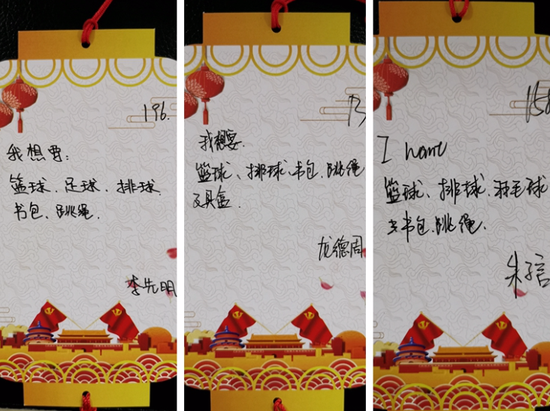 196.
我想要:
篮球、足球、排球、
书包、跳绳.
李先明
13
我想要
篮球、排球、书包、跳绳
文具盒
龙德周
I
篮球、排球、羽毛球
书包、跳绳.